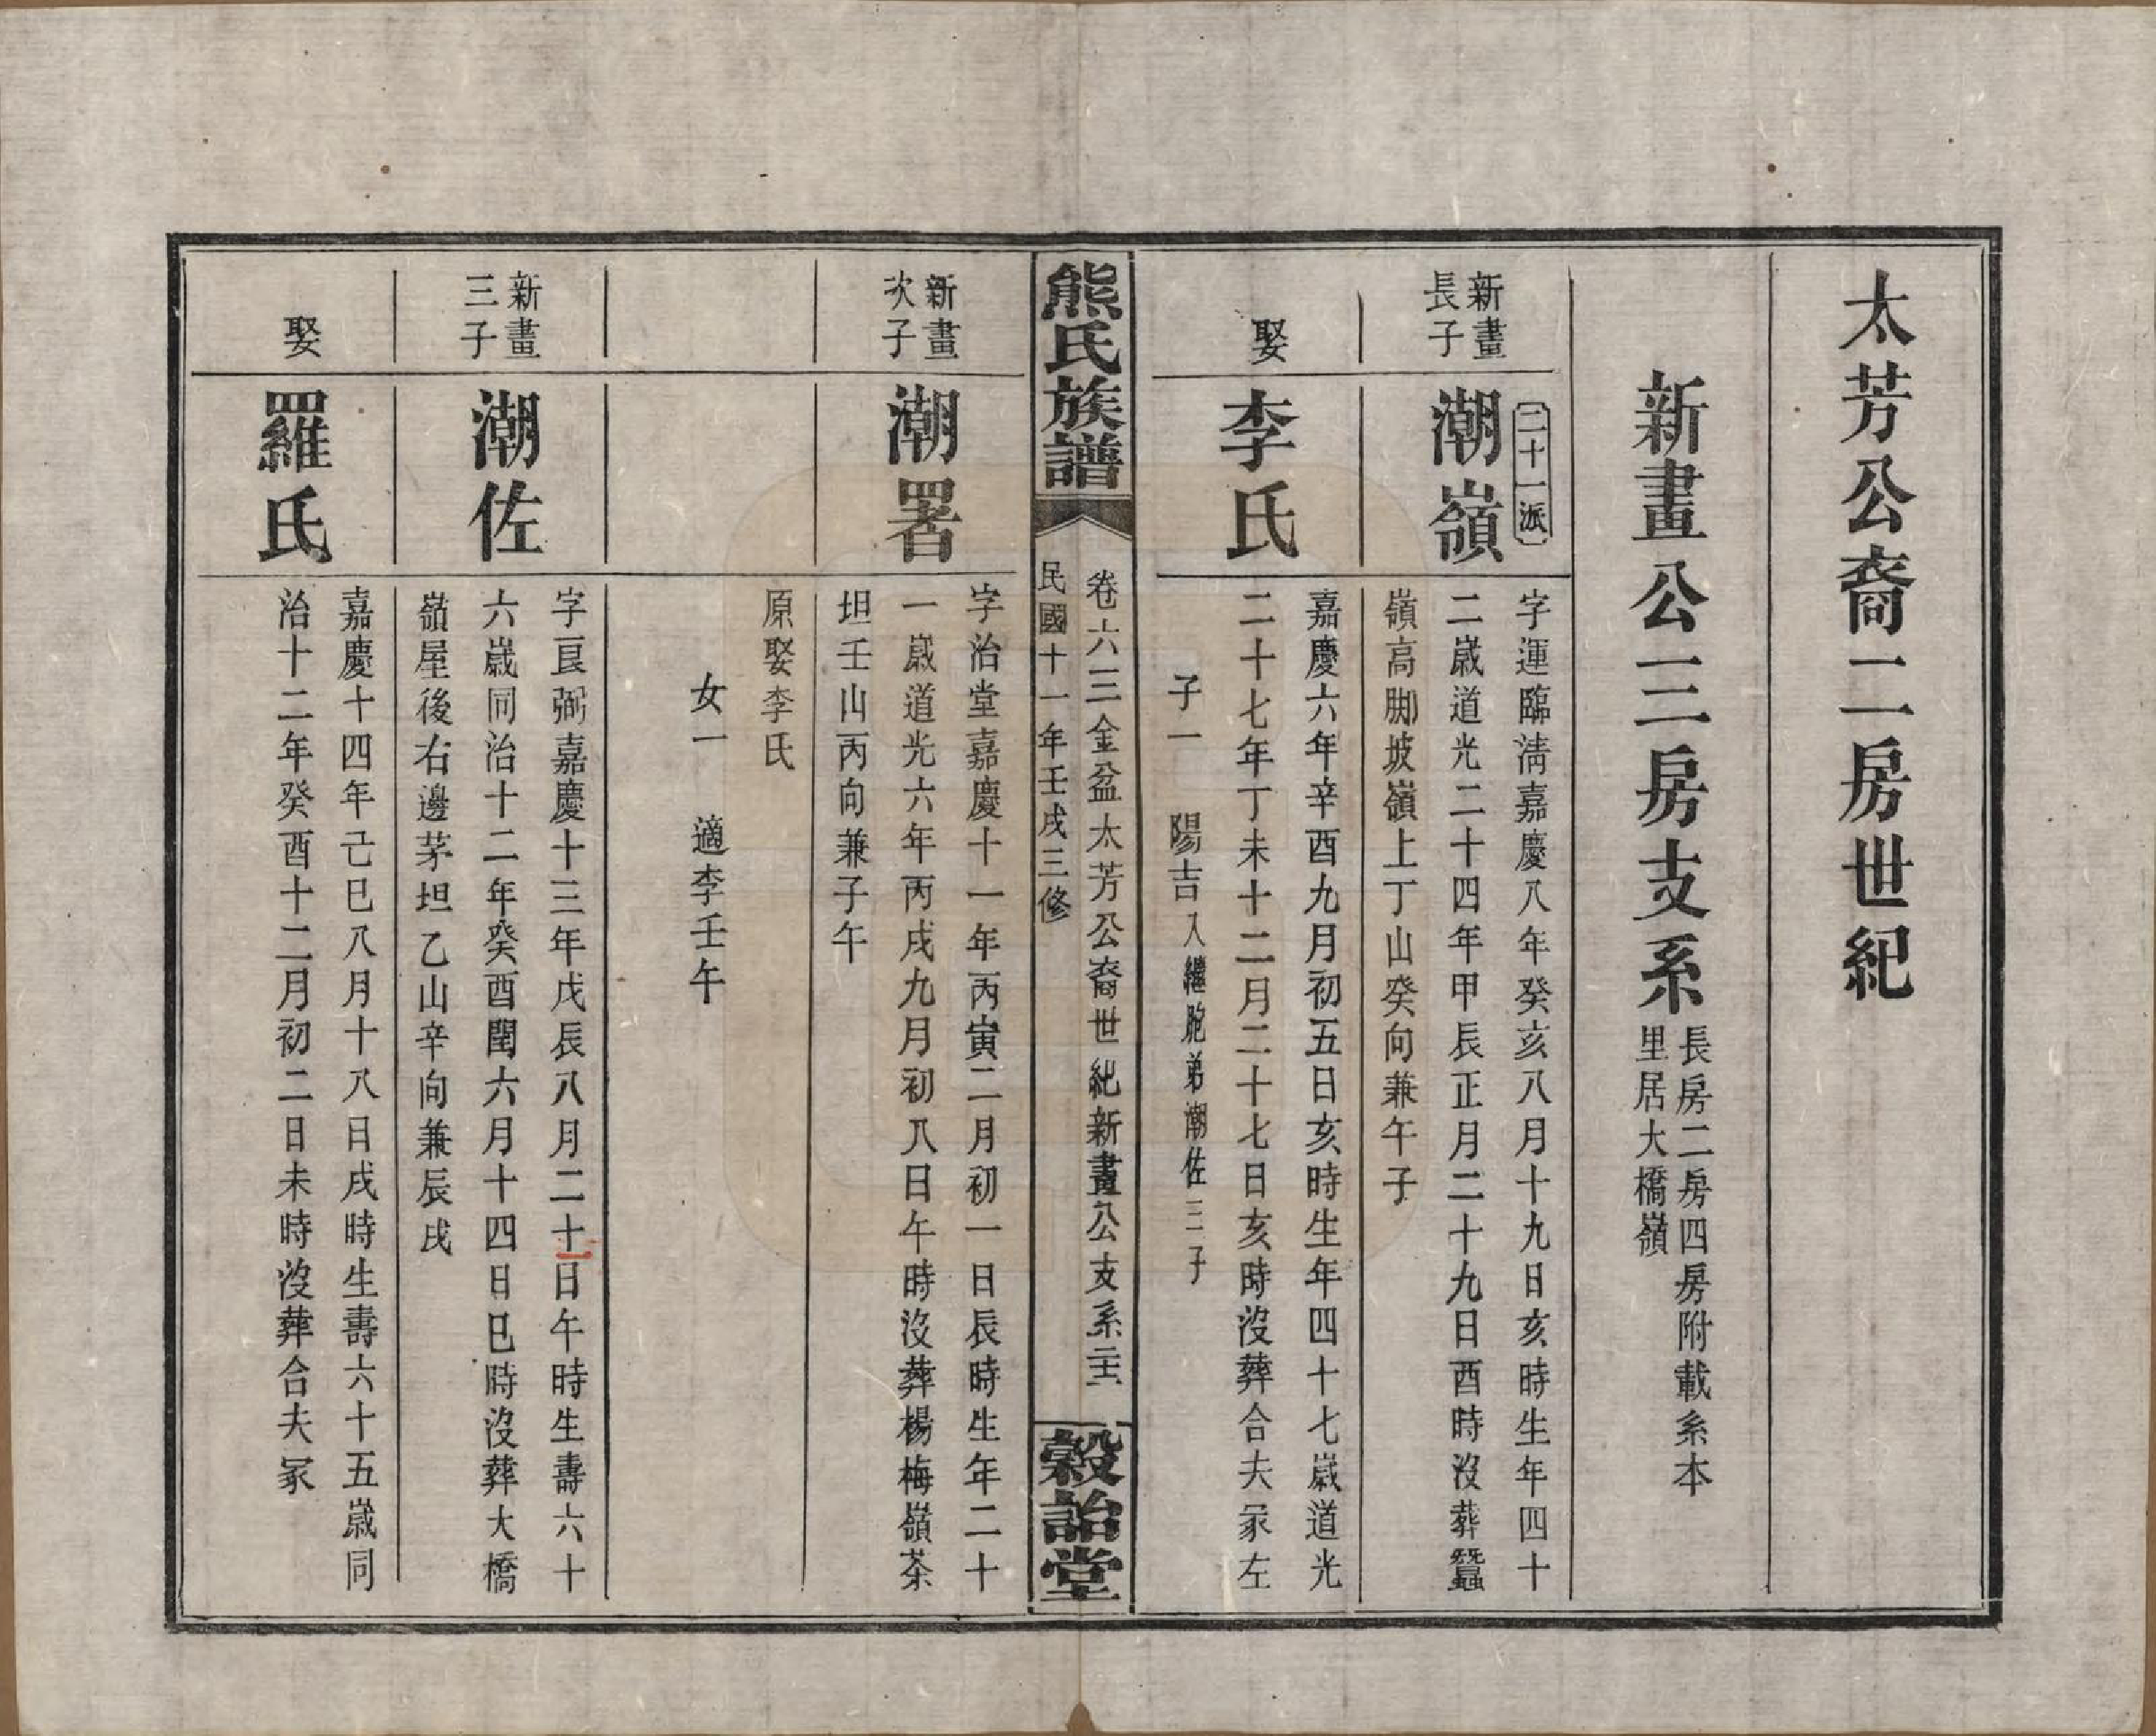 太芳公裔二房世紀
新畫公三房支系
長房二房四房附載系本
里居大橋嶺
新畫
長子
二十一派
潮嶺
字運臨清嘉慶八年癸亥八月十九日亥時生年四十
二歲道光二十四年甲辰正月二十九日酉時沒葬蠶
嶺高腳坡嶺上丁山癸向兼午子
娶
李氏
嘉慶六年辛酉九月初五日亥時生年四十七歲道光
二十七年丁未十二月二十七日亥時沒葬合夫冢左
子一 陽吉入繼胞弟潮佐三子
熊氏族譜
卷六三金盆太芳公裔世紀新畫公支系
民國十一年壬戌三修
穀詒堂
新畫
次子
潮署
字治堂嘉慶十一年丙寅二月初一日辰時生年二十
一歲道光六年丙戌九月初八日午時沒葬楊梅嶺茶
坦壬山丙向兼子午
原娶李氏
女一 適李壬午
新畫
三子
潮佐
字艮弼嘉慶十三年戊辰八月二十日午時生壽六十
六歲同治十二年癸酉閏六月十四日巳時沒葬大橋
嶺屋後右邊茅坦乙山辛向兼辰戌
娶
羅氏
嘉慶十四年己巳八月十八日戌時生壽六十五歲同
治十二年癸酉十二月初二日未時沒葬合夫冢